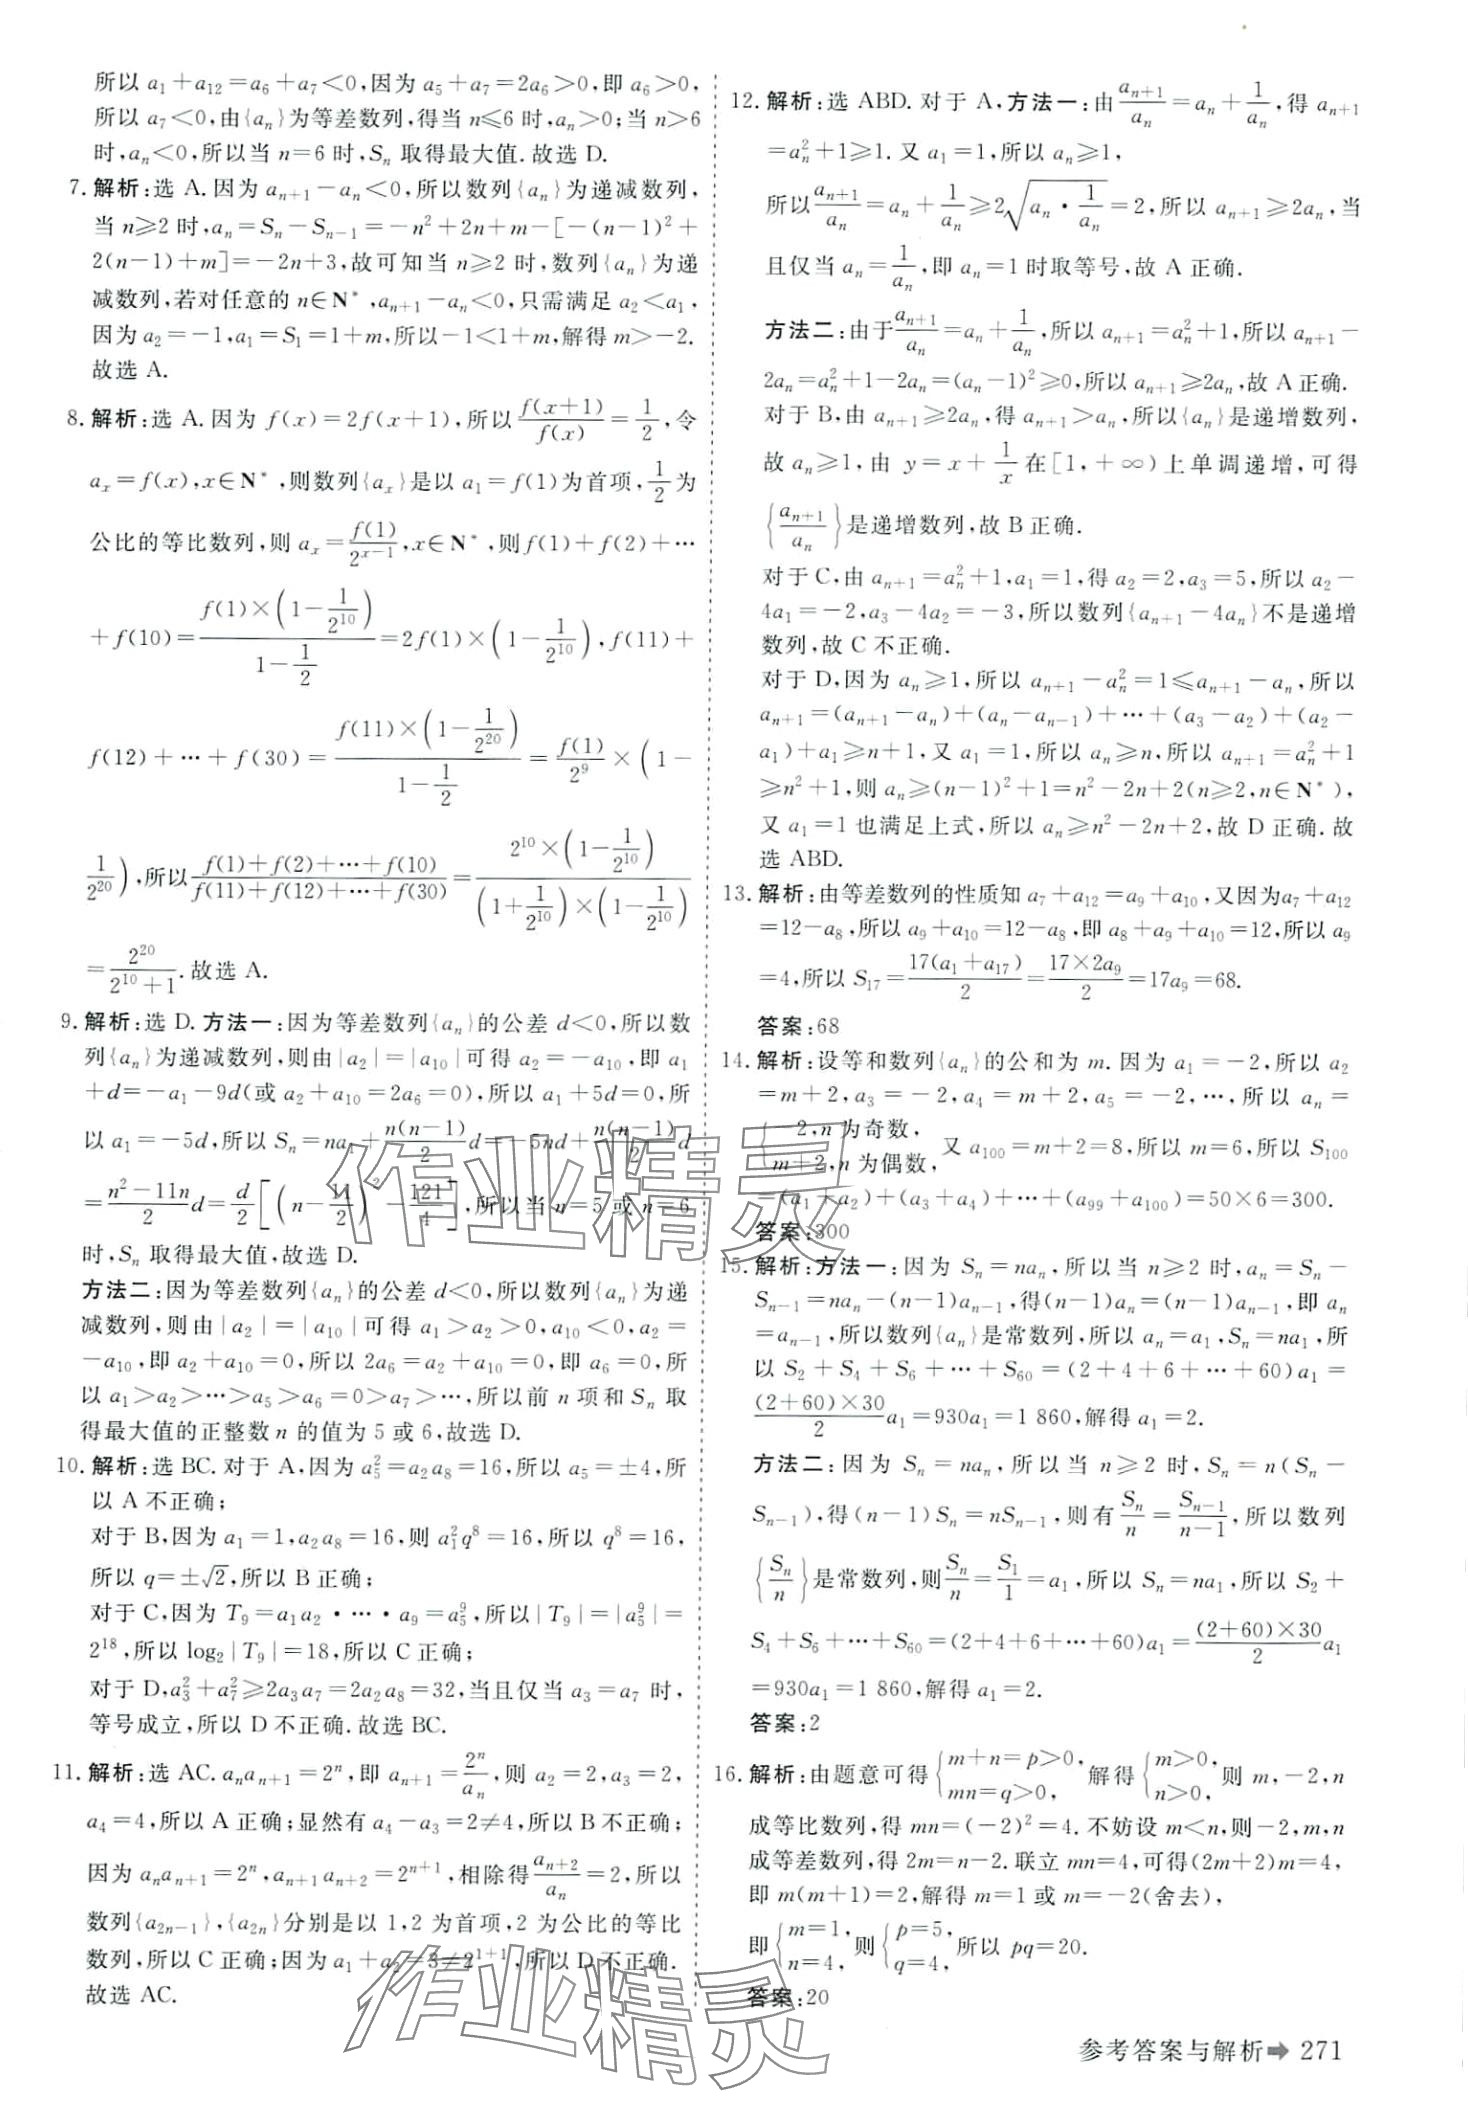 所以 a₁+a₁₂=a₆+a₇<0,因为 a₅+a₇=2a₆>0,即 a₆>0,
所以 a₇<0,由{aₙ}为等差数列,得当 n≤6 时,aₙ>0;当 n>6
时,aₙ<0,所以当 n=6 时,Sₙ 取得最大值.故选 D.
7. 解析:选 A.因为 aₙ₊₁-aₙ<0,所以数列{aₙ}为递减数列,
当 n≥2 时,aₙ=Sₙ-Sₙ₋₁=-n²+2n+m-[-(n-1)²+
2(n-1)+m]=-2n+3,故可知当 n≥2 时,数列{aₙ}为递
减数列,若对任意的 n∈N*,aₙ₊₁-aₙ<0,只需满足 a₂<a₁,
因为 a₂=-1,a₁=S₁=1+m,所以-1<1+m,解得 m>-2.
故选 A.
8. 解析:选 A.因为 f(x)=2f(x+1),所以 f(x+1)/f(x)=1/2,令
aₓ=f(x),x∈N*,则数列{aₓ}是以 a₁=f(1)为首项,1/2为
公比的等比数列,则 aₓ=f(1)/2ˣ⁻¹,x∈N*,则 f(1)+f(2)+⋯
+f(10)=[f(1)×(1-1/2¹⁰)]/(1-1/2)=2f(1)×(1-1/2¹⁰),f(11)+
f(12)+⋯+f(30)=[f(11)×(1-1/2²⁰)]/(1-1/2)=f(1)/2⁹×(1-
1/2²⁰),所以[f(1)+f(2)+⋯+f(10)]/[f(11)+f(12)+⋯+f(30)]=[2¹⁰×(1-1/2¹⁰)]/[(1+1/2¹⁰)×(1-1/2¹⁰)]
=2²⁰/(2¹⁰+1).故选 A.
9. 解析:选 D.方法一:因为等差数列{aₙ}的公差 d<0,所以数
列{aₙ}为递减数列,则由|a₂|=|a₁₀|可得 a₂=-a₁₀,即 a₁
+d=-a₁-9d(或 a₂+a₁₀=2a₆=0),所以 a₁+5d=0,所
以 a₁=-5d,所以 Sₙ=na₁+n(n-1)/2 d=-5nd+n(n-1)/2 d
=(n²-11n)/2 d=d/2[(n-11/2)²-121/4],所以当 n=5 或 n=6
时,Sₙ 取得最大值,故选 D.
方法二:因为等差数列{aₙ}的公差 d<0,所以数列{aₙ}为递
减数列,则由|a₂|=|a₁₀|可得 a₁>a₂>0,a₁₀<0,a₂=
-a₁₀,即 a₂+a₁₀=0,所以 2a₆=a₂+a₁₀=0,即 a₆=0,所
以 a₁>a₂>⋯>a₅>a₆=0>a₇>⋯,所以前 n 项和 Sₙ 取
得最大值的正整数 n 的值为 5 或 6,故选 D.
10. 解析:选 BC.对于 A,因为 a₅²=a₂a₈=16,所以 a₅=±4,所
以 A 不正确;
对于 B,因为 a₁=1,a₂a₈=16,则 a₁²q⁸=16,所以 q⁸=16,
所以 q=±√2,所以 B 正确;
对于 C,因为 T₉=a₁a₂·⋯·a₉=a₅⁹,所以|T₉|=|a₅⁹|=
2¹⁸,所以 log₂|T₉|=18,所以 C 正确;
对于 D,a₃²+a₇²≥2a₃a₇=2a₂a₈=32,当且仅当 a₃=a₇ 时,
等号成立,所以 D 不正确.故选 BC.
11. 解析:选 AC.aₙaₙ₊₁=2ⁿ,即 aₙ₊₁=2ⁿ/aₙ,则 a₂=2,a₃=2,
a₄=4,所以 A 正确;显然有 a₄-a₃=2≠4,所以 B 不正确;
因为 aₙaₙ₊₁=2ⁿ,aₙ₊₁aₙ₊₂=2ⁿ⁺¹,相除得 aₙ₊₂/aₙ=2,所以
数列{a₂ₙ₋₁},{a₂ₙ}分别是以 1,2 为首项,2 为公比的等比
数列,所以 C 正确;因为 a₁+a₂=3≠2¹⁺¹,所以 D 不正确.
故选 AC.
12. 解析:选 ABD.对于 A,方法一:由 aₙ₊₁/aₙ=aₙ+1/aₙ,得 aₙ₊₁
=aₙ²+1≥1.又 a₁=1,所以 aₙ≥1,
所以 aₙ₊₁/aₙ=aₙ+1/aₙ≥2√(aₙ·1/aₙ)=2,所以 aₙ₊₁≥2aₙ,当
且仅当 aₙ=1/aₙ,即 aₙ=1 时取等号,故 A 正确.
方法二:由于 aₙ₊₁/aₙ=aₙ+1/aₙ,所以 aₙ₊₁=aₙ²+1,所以 aₙ₊₁-
2aₙ=aₙ²+1-2aₙ=(aₙ-1)²≥0,所以 aₙ₊₁≥2aₙ,故 A 正确.
对于 B,由 aₙ₊₁≥2aₙ,得 aₙ₊₁>aₙ,所以{aₙ}是递增数列,
故 aₙ≥1,由 y=x+1/x 在[1,+∞)上单调递增,可得
{aₙ₊₁/aₙ}是递增数列,故 B 正确.
对于 C,由 aₙ₊₁=aₙ²+1,a₁=1,得 a₂=2,a₃=5,所以 a₂-
4a₁=-2,a₃-4a₂=-3,所以数列{aₙ₊₁-4aₙ}不是递增
数列,故 C 不正确.
对于 D,因为 aₙ≥1,所以 aₙ₊₁-aₙ²=1≤aₙ₊₁-aₙ,所以
aₙ₊₁=(aₙ₊₁-aₙ)+(aₙ-aₙ₋₁)+⋯+(a₃-a₂)+(a₂-
a₁)+a₁≥n+1,又 a₁=1,所以 aₙ≥n,所以 aₙ₊₁=aₙ²+1
≥n²+1,则 aₙ≥(n-1)²+1=n²-2n+2(n≥2,n∈N*),
又 a₁=1 也满足上式,所以 aₙ≥n²-2n+2,故 D 正确.故
选 ABD.
13. 解析:由等差数列的性质知 a₇+a₁₂=a₉+a₁₀,又因为a₇+a₁₂
=12-a₈,所以 a₉+a₁₀=12-a₈,即 a₈+a₉+a₁₀=12,所以 a₉
=4,所以 S₁₇=17(a₁+a₁₇)/2=17×2a₉/2=17a₉=68.
答案:68
14. 解析:设等和数列{aₙ}的公和为 m.因为 a₁=-2,所以 a₂
=m+2,a₃=-2,a₄=m+2,a₅=-2,⋯,所以 aₙ=
{-2,n 为奇数, m+2,n 为偶数, 又 a₁₀₀=m+2=8,所以 m=6,所以 S₁₀₀
=(a₁+a₂)+(a₃+a₄)+⋯+(a₉₉+a₁₀₀)=50×6=300.
答案:300
15. 解析:方法一:因为 Sₙ=naₙ,所以当 n≥2 时,aₙ=Sₙ-
Sₙ₋₁=naₙ-(n-1)aₙ₋₁,得(n-1)aₙ=(n-1)aₙ₋₁,即 aₙ
=aₙ₋₁,所以数列{aₙ}是常数列,所以 aₙ=a₁,Sₙ=na₁,所
以 S₂+S₄+S₆+⋯+S₆₀=(2+4+6+⋯+60)a₁=
(2+60)×30/2 a₁=930a₁=1 860,解得 a₁=2.
方法二:因为 Sₙ=naₙ,所以当 n≥2 时,Sₙ=n(Sₙ-
Sₙ₋₁),得(n-1)Sₙ=nSₙ₋₁,则有 Sₙ/n=Sₙ₋₁/(n-1),所以数列
{Sₙ/n}是常数列,则 Sₙ/n=S₁/1=a₁,所以 Sₙ=na₁,所以 S₂+
S₄+S₆+⋯+S₆₀=(2+4+6+⋯+60)a₁=(2+60)×30/2 a₁
=930a₁=1 860,解得 a₁=2.
答案:2
16. 解析:由题意可得{m+n=p>0, mn=q>0, 解得{m>0, n>0, 则 m,-2,n
成等比数列,得 mn=(-2)²=4.不妨设 m<n,则-2,m,n
成等差数列,得 2m=n-2.联立 mn=4,可得(2m+2)m=4,
即 m(m+1)=2,解得 m=1 或 m=-2(舍去),
即{m=1, n=4, 则{p=5, q=4, 所以 pq=20.
答案:20
参考答案与解析➡271
作业精灵
作业精灵